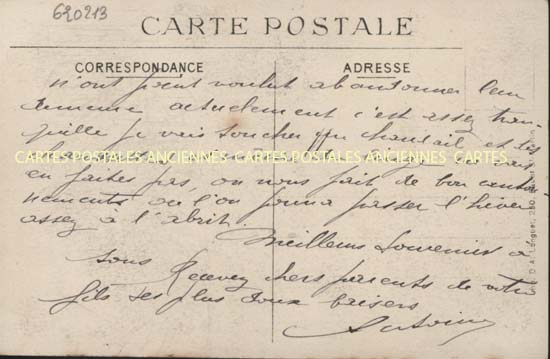 620213
CARTE POSTALE
CORRESPONDANCE
ADRESSE
n'ont point voulut abandonner leur
demeure actuelement c'est assez tran-
quille je vais toucher un chandail et les
CARTES POSTALES ANCIENNES CARTES POSTALES ANCIENNES CARTES
en faites pas, on nous fait de bon canton
nements où l'on pourra passer l'hiver
assez à l'abrit.
Meilleurs Souvenirs à
tous
Recevez chers parents de votre
fils ses plus doux baisers
Antoine